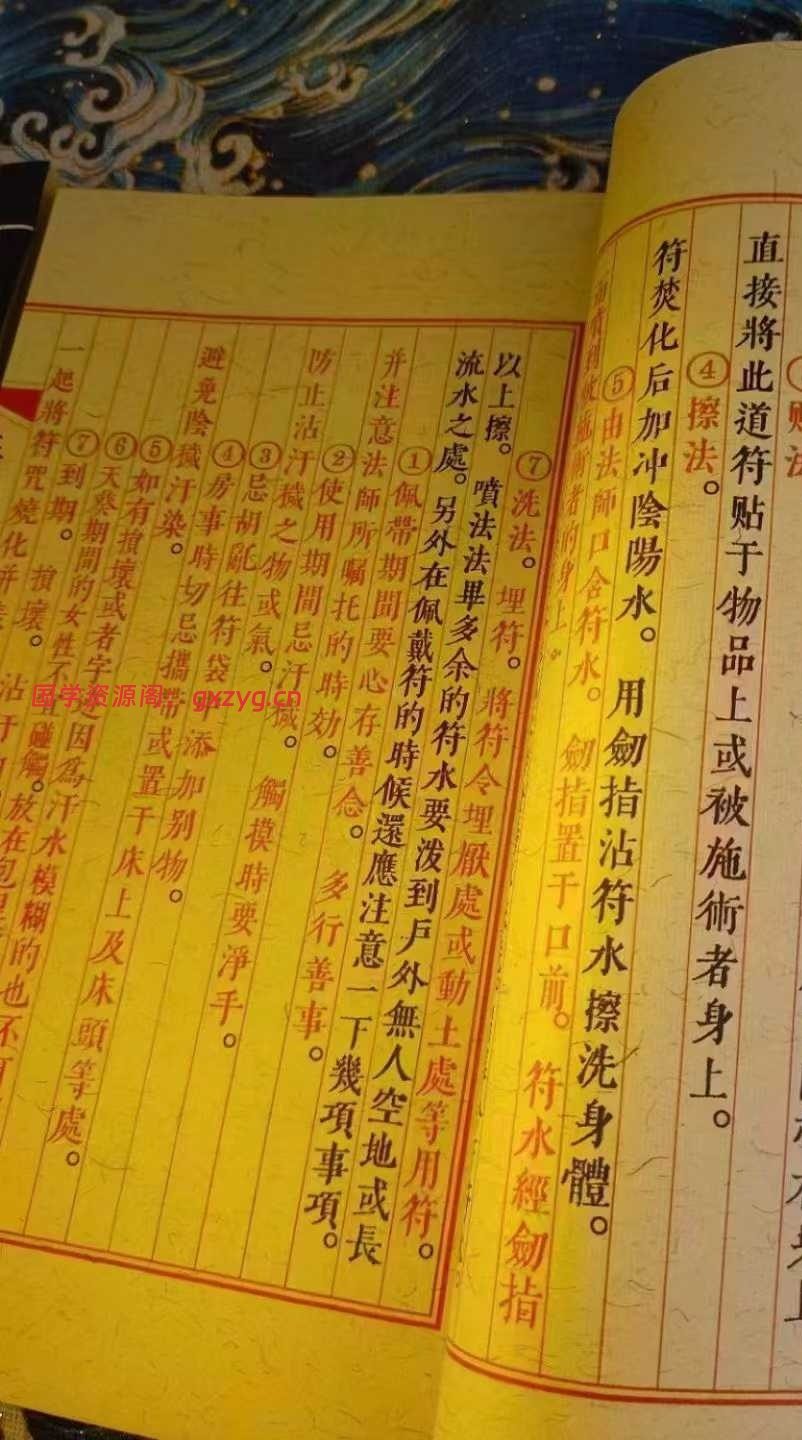 贴法
直接將此道符贴于物品上或被施術者身上。
④擦法。
符焚化后加冲陰陽水。用劍指沾符水擦洗身體。
⑤由法師口含符水。劍指置于口前。符水經劍指
施術者的身上。
⑦洗法。埋符。將符令埋厭處或動土處等用符。
以上擦。噴法法畢多余的符水要泼到户外無人空地或長
流水之處。另外在佩戴符的時候還應注意一下幾項事項。
①佩帶期間要心存善念。多行善事。
并注意法師所囑托的時効。
②使用期間忌汗穢。觸摸時要淨手。
防止沾汗穢之物或氣。
③忌胡亂往符袋中添加别物。
④房事時切忌攜帶或置于床上及床頭等處。
避免陰穢汗染。
⑤如有損壞或者字
因為汗水模糊的也不
⑥天葵期間的女性不
碰觸。放在包
⑦到期。損壞。沾汗
一起將符咒燒化并
国学资源阁：gxzyg.cn